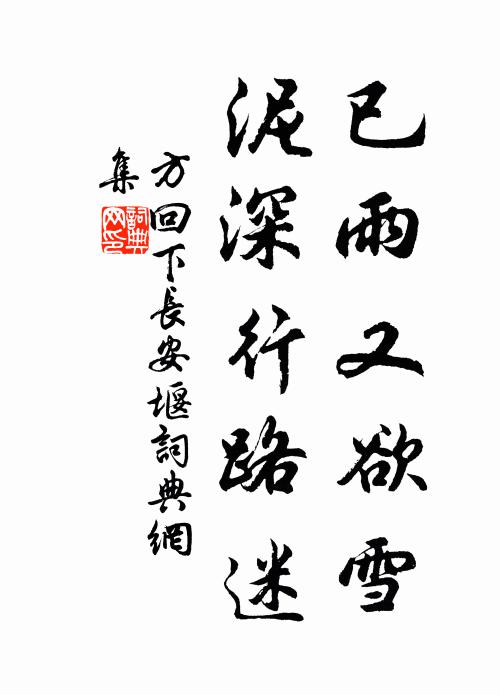 已雨又欲雪
泥深行路迷
方回下長安堰詞典網
集
詞典
网印